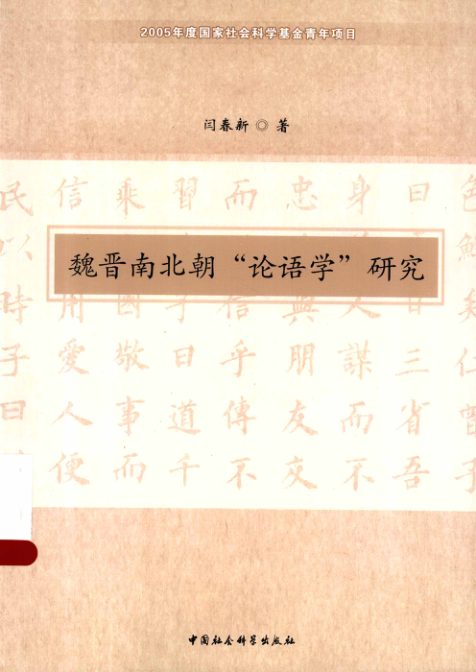 2005年度国家社会科学基金青年项目
闫春新◎著
魏晋南北朝“论语学”研究
色鮮矣仁曾子
曰日三省吾
身人謀而不
忠與朋友交
而信乎傳不
習子曰道千
乘國敬事而
信用愛人便
民以時子曰
中国社会科学出版社